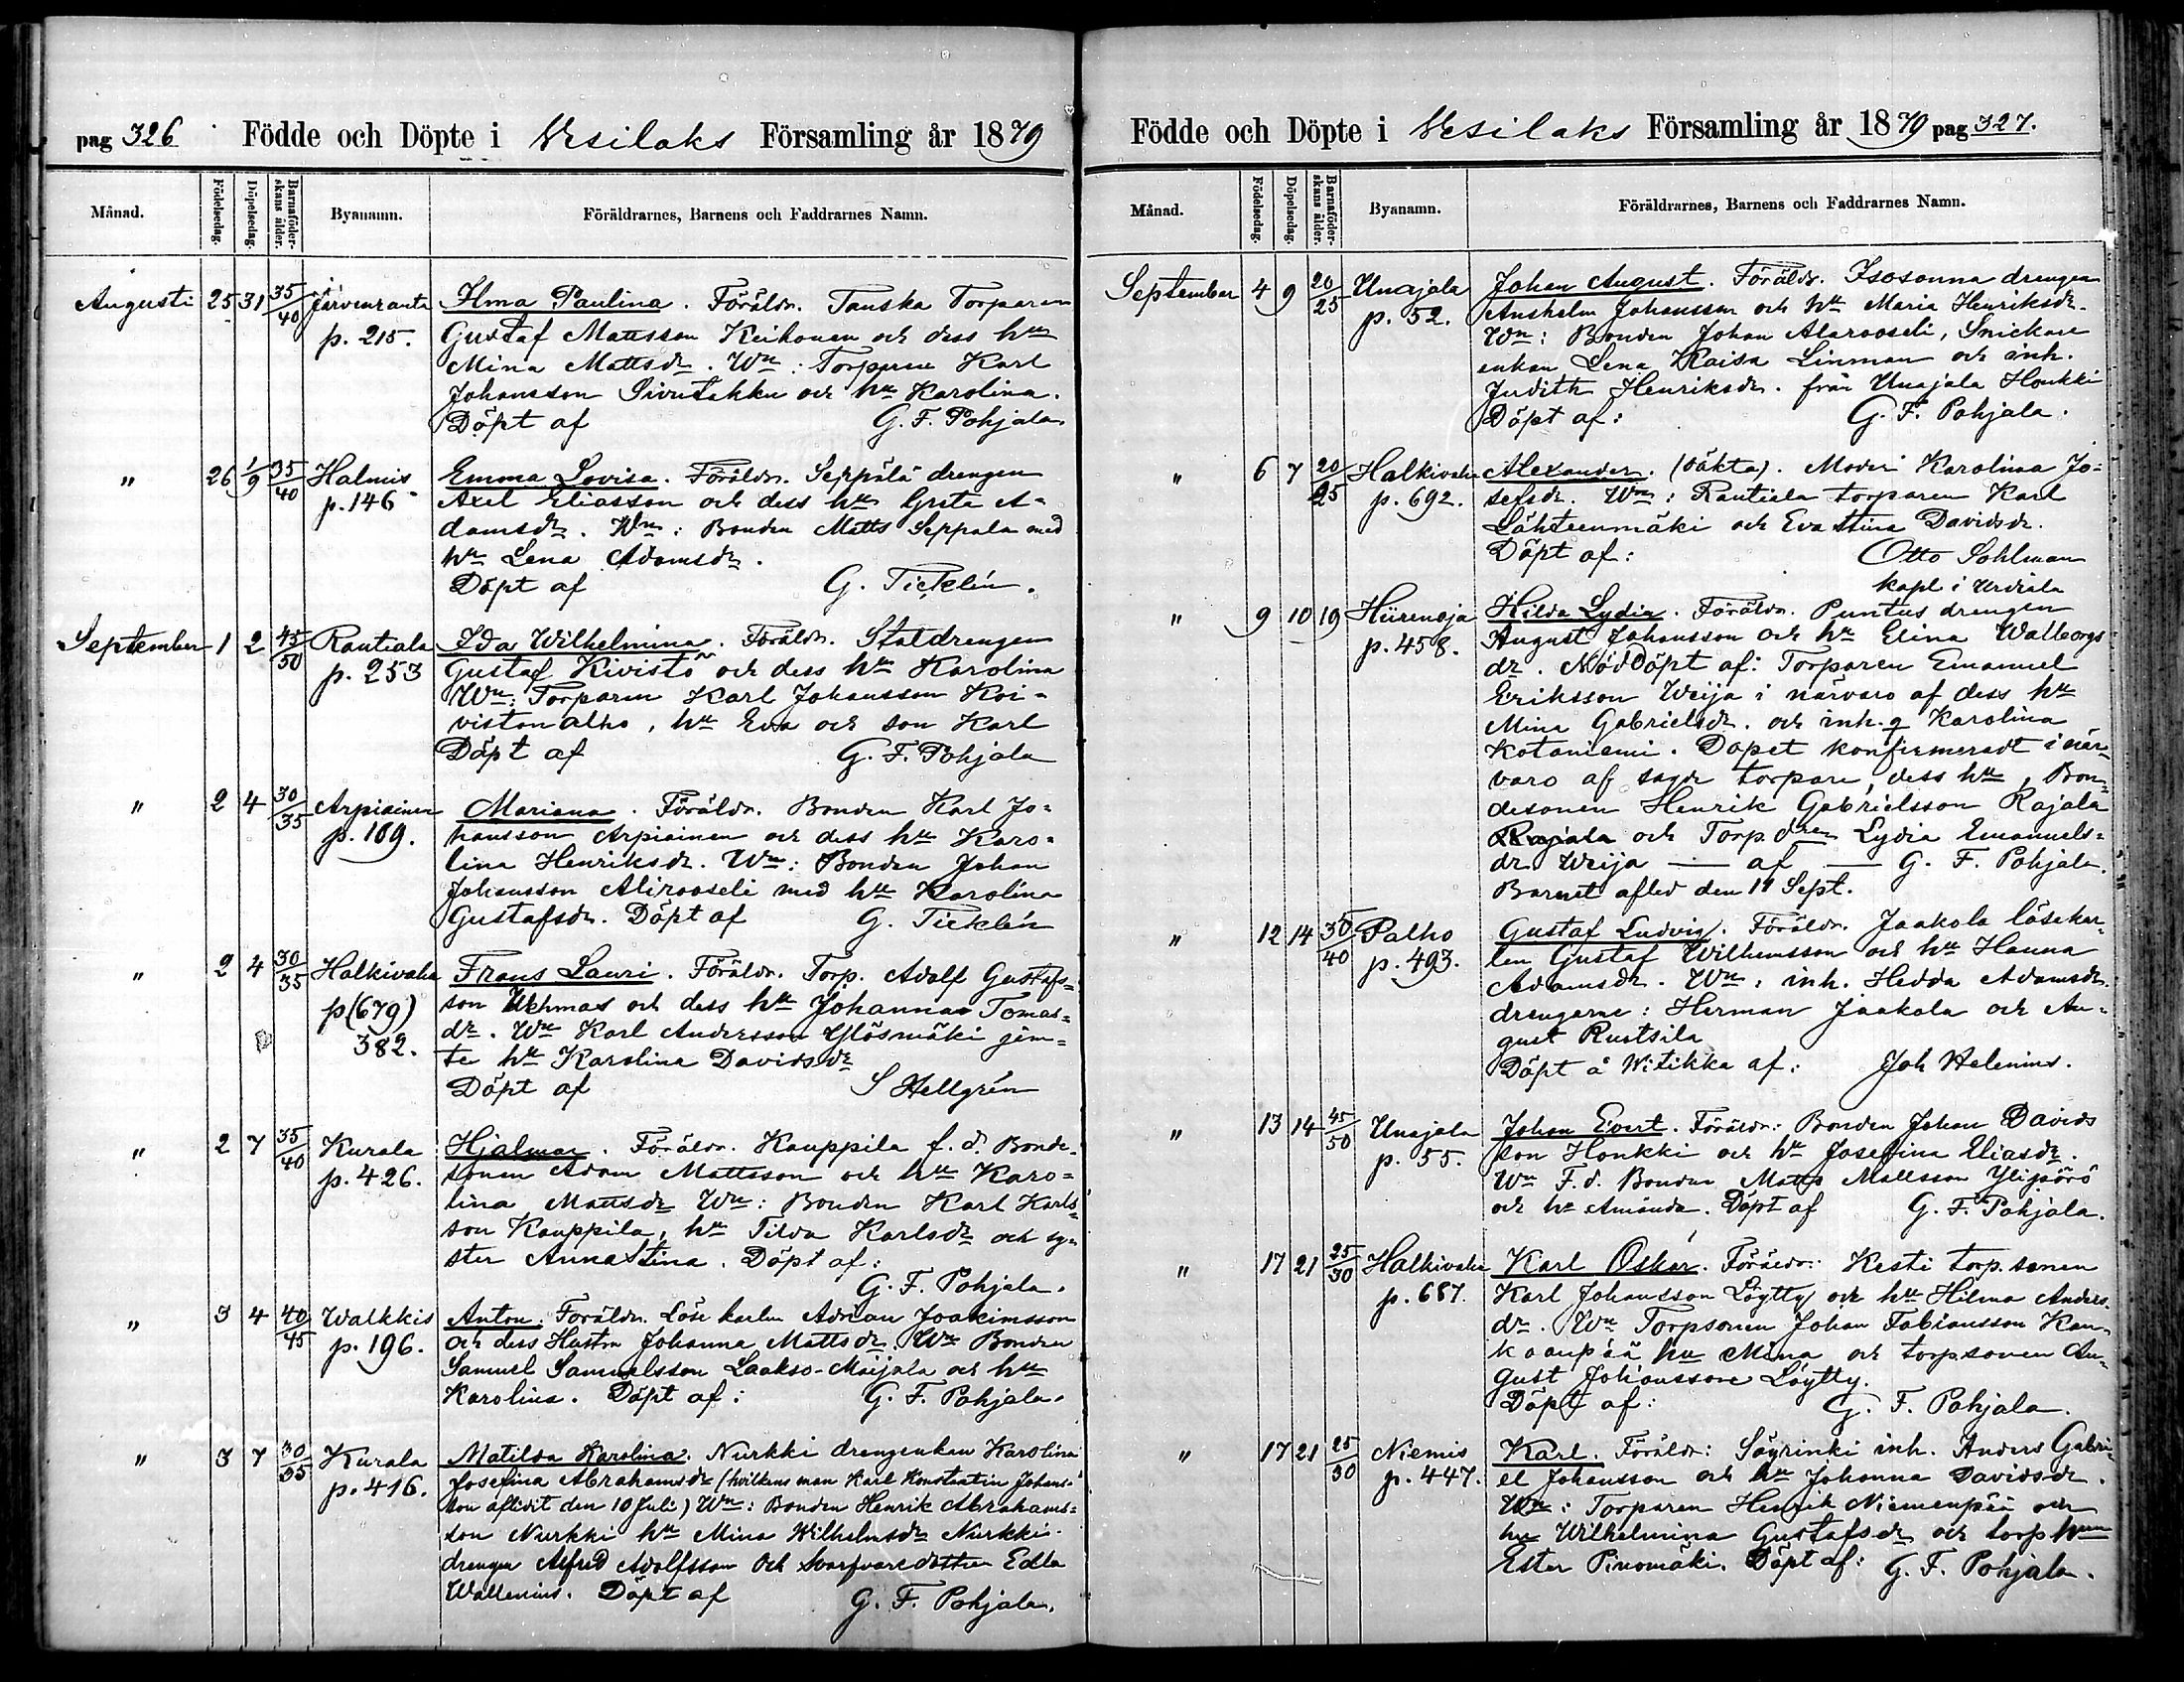 pag 326 Födde och Döpte i Vesilaks Församling år 1879
Månad. Födelsedag. Döpelsedag. Barnaföder-skans ålder. Byanamn. Föräldrarnes, Barnens och Faddrarnes Namn.
Augusti 25 31 35/40 Järvenranta Ilma Paulina. Föräldr. Tanska Torparen
p. 215. Gustaf Mattsson Keihonen och dess hu
Mina Mattsdr. Wn: Torparen Karl
Johansson Siivutakku och hu Karolina.
Döpt af G. F. Pohjala
" 26 1/9 35/40 Halmis Emma Lovisa. Föräldr. Seppälä drengen
p. 146 Axel Eliasson och dess hu Greta A-
damsdr. Wn: Bonden Matts Seppala med
hu Lena Adamsdr.
Döpt af G. Ticklén.
September 1 2 45/50 Rautiala Ida Wilhelmina. Föräldr. Statdrengen
p. 253 Gustaf Kivistö och dess hu Karolina
Wn: Torparen Karl Johansson Koi-
vistonalho, hu Eva och son Karl
Döpt af G. F. Pohjala
" 2 4 30/35 Arpiainen Mariana. Föräldr. Bonden Karl Jo-
p. 109. hansson Arpiainen och dess hu Karo-
lina Henriksdr. Wn: Bonden Johan
Johansson Alirooseli med hu Karolina
Gustafsdr. Döpt af G. Ticklén
" 2 4 30/35 Halkivaha Frans Lauri. Föräldr. Torp. Adolf Gustafs-
p (679) son Uhmas och dess hu Johanna Tomas-
382. dr. Wn Karl Andersson Ylösmäki jem-
te hu Karolina Davidsdr
Döpt af S Hellgrén
" 2 7 35/40 Kurala Hjalmar. Föräldr. Kauppila f.d. Bonde-
p. 426. sonen Adam Mattsson och hu Karo-
lina Mattsdr Wn: Bonden Karl Karls-
son Kauppila, hu Tilda Karlsdr och sy-
ster Anna Stina. Döpt af:
G. F. Pohjala.
" 3 4 40/45 Walkkis Anton: Föräldr. Löse karlen Adrian Joakimsson
p. 196. och dess Hustru Johanna Mattsdr. Wn Bonden
Samuel Samuelsson Laakso-Maijala och hu
Karolina. Döpt af: G. F. Pohjala.
" 3 7 30/35 Kurala Matilda Karolina. Nurkki drengenkan Karolina
p. 416. Josefina Abrahamsdr (hvilkens man Karl Konstantin Johans-
son aflidit den 10 Juli) Wn: Bonden Henrik Abrahams-
son Nurkki hu Mina Wilhelmsdr Nurkki
drengen Alfred Adolfsson och Svarfvaredottren Edla
Wallenius. Döpt af G. F. Pohjala.
Födde och Döpte i Vesilaks Församling år 1879 pag 327.
Månad. Födelsedag. Döpelsedag. Barnaföder-skans ålder. Byanamn. Föräldrarnes, Barnens och Faddrarnes Namn.
September 4 9 20/25 Unajala Johan August. Föräldr. Isosonna drengen
p. 52. Anshelm Johansson och hu Maria Henriksdr.
Wn: Bonden Johan Alarooseli, Snickare
enkan Lena Kaisa Linman och inh.
Judith Henriksdr. från Unajala Honkki
Döpt af: G. F. Pohjala.
" 6 7 20/25 Halkivaha Alexander. (oäkta). Moder Karolina Jo-
p. 692. sefsdr. Wn: Rautiala torparen Karl
Lähteenmäki och Eva Stina Davidsdr.
Döpt af: Otto Sohlman
kapl. i Urdiala
" 9 10 19 Hiirenoja Hilda Lydia. Föräldr. Puntus drengen
p. 458. August Johansson och hu Elina Walborgs
dr. Nöddöpt af: Torparen Emanuel
Eriksson Weija i närvaro af dess hu
Mina Gabrielsdr. och inh. q Karolina
Kotaniemi. Dopet konfirmeradt i när-
varo af sagde torpare, dess hu, Bon-
desonen Henrik Gabrielsson Rajala
Rajala och Torp.dren Lydia Emanuels-
dr Weija — af — G. F. Pohjala.
Barnet afled den 11 Sept.
" 12 14 35/40 Palho Gustaf Ludvig. Föräldr. Jaakola lösekar-
p. 493. len Gustaf Wilhemsson och hu Hanna
Adamsdr. Wn: inh. Hedda Adamsdr.
drengarne: Herman Jaakola och Au-
gust Rustsila
Döpt å Witikka af: Joh Helenius.
" 13 14 45/50 Unajala Johan Evert. Föräldr: Bonden Johan Davids
p. 55. son Honkki och hu Josefina Eliasdr.
Wn F.d. Bonden Matts Mattsson Ylipörö
och hu Amanda. Döpt af G. F. Pohjala.
" 17 21 25/30 Halkivaha Karl Oskar. Föräldr: Kesti torp.sonen
p. 687. Karl Johansson Löytty och hu Hilma Anders-
dr. Wn Torpsonen Johan Fabiansson Kan-
kaanpää hu Mina och torpsonen Au-
gust Johansson Löytty.
Döpt af: G. F. Pohjala.
" 17 21 25/30 Niemis Karl. Föräldr: Säyrinki inh. Anders Gabri-
p. 447. el Johansson och hu Johanna Davidsdr.
Wn: Torparen Henrik Niemenpää och
hu Wilhelmina Gustafsdr och torp hun
Ester Pinomäki. Döpt af: G. F. Pohjala.